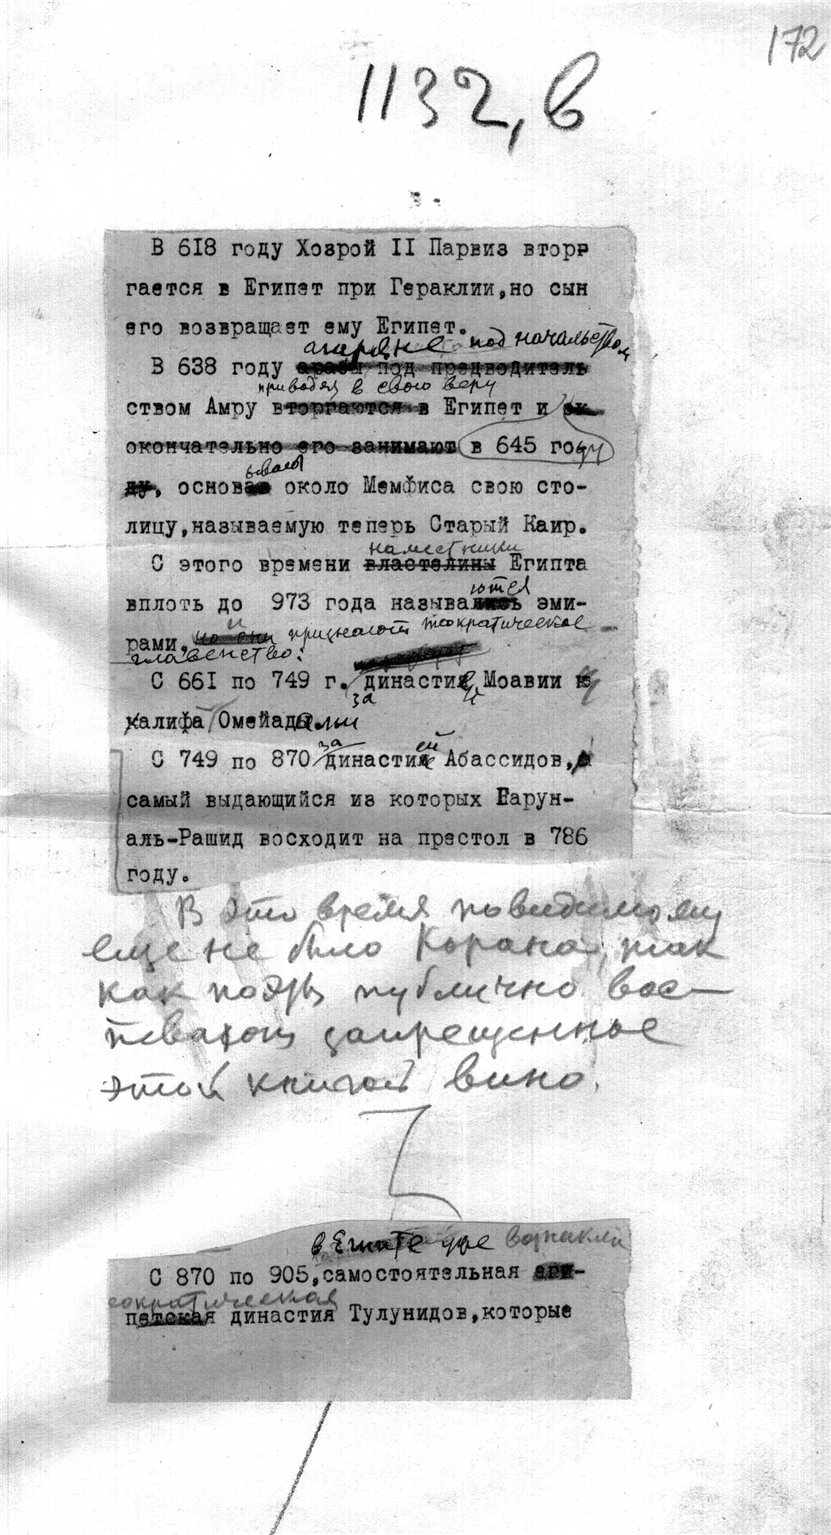 172
1132, в
В 618 году Хозрой II Парвиз вторг
гается в Египет при Гераклии, но сын
его возвращает ему Египет.
агаряне под начальством
В 638 году арабы под предводитель
приводят в свою веру
ством Амру вторгаются в Египет и ок
окончательно его занимают в 645 году
ду, основ
ывают
около Мемфиса свою сто-
лицу, называемую теперь Старый Каир.
наместники
С этого времени властелины Египта
ются
вплоть до 973 года назывались эми-
рами, но они признают теократическое
главенство:
С 661 по 749 г. династия Моавии и
за
калифа Омейадами
за ей
С 749 по 870 династия Абассидов, а
самый выдающийся из которых Гарун-
аль-Рашид восходит на престол в 786
году.
В это время повидимому
еще не было Корана, так
как поэты публично вос-
певают запрещенное
этой книгой вино.
в Египте уже возникли
С 870 по 905, самостоятельная еги-
теократическая
петская династия Тулунидов, которые